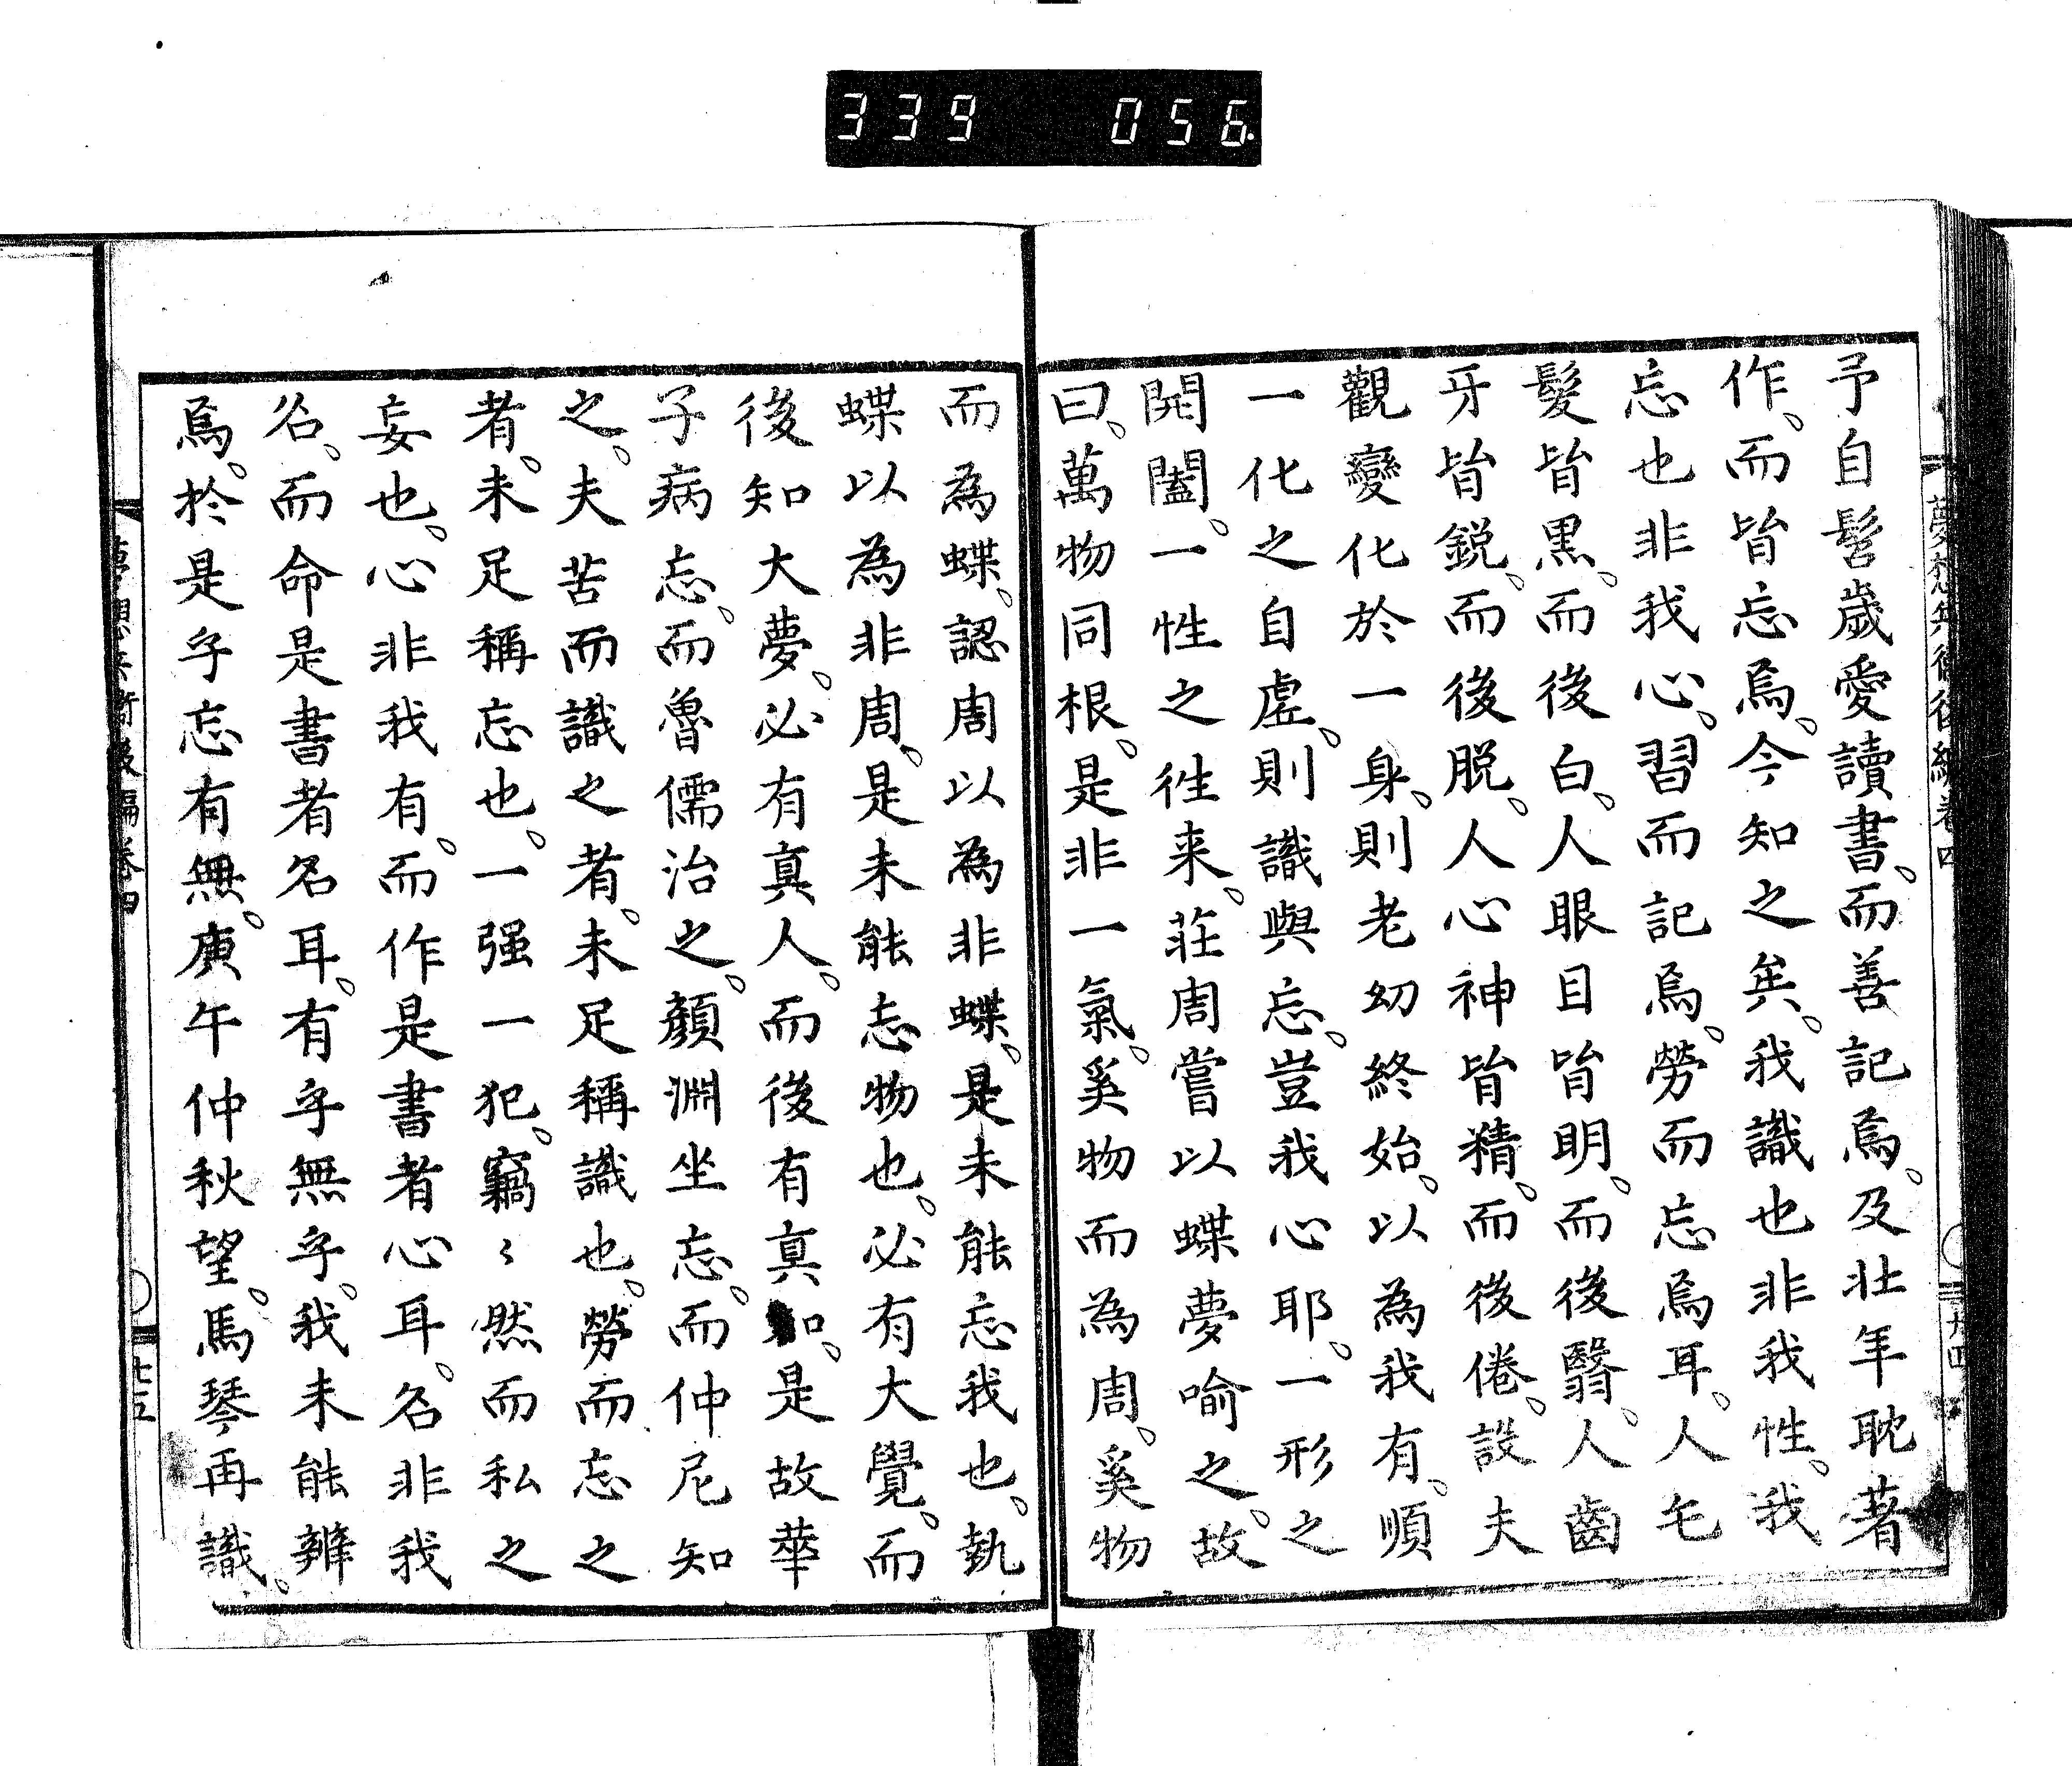 339 056
夢想兵衛後編卷四
予自髫歲愛讀書、而善記焉、及壯年耽著
作、而皆忘焉、今知之矣、我識也非我性、我
忘也非我心、習而記焉、勞而忘焉耳、人毛
髮皆黑、而後白、人眼目皆明、而後翳、人齒
牙皆銳、而後脫、人心神皆精、而後倦、設夫
觀變化於一身、則老幼終始、以為我有、順
一化之自虛、則識與忘、豈我心耶、一形之
開闔、一性之徃来、莊周嘗以蝶夢喻之、故
曰、萬物同根、是非一氣、奚物而為周、奚物
而為蝶、認周以為非蝶、是未能忘我也、執
蝶以為非周、是未能忘物也、必有大覺、而
後知大夢、必有真人、而後有真知、是故華
子病忘、而魯儒治之、顏淵坐忘、而仲尼知
之、夫苦而識之者、未足稱識也、勞而忘之
者、未足稱忘也、一强一犯、竊〻然而私之
妄也、心非我有、而作是書者心耳、名非我
名、而命是書者名耳、有乎無乎、我未能辨
焉、於是乎忘有無、庚午仲秋望、馬琴再識、
夢想兵衛後編卷四
廿五